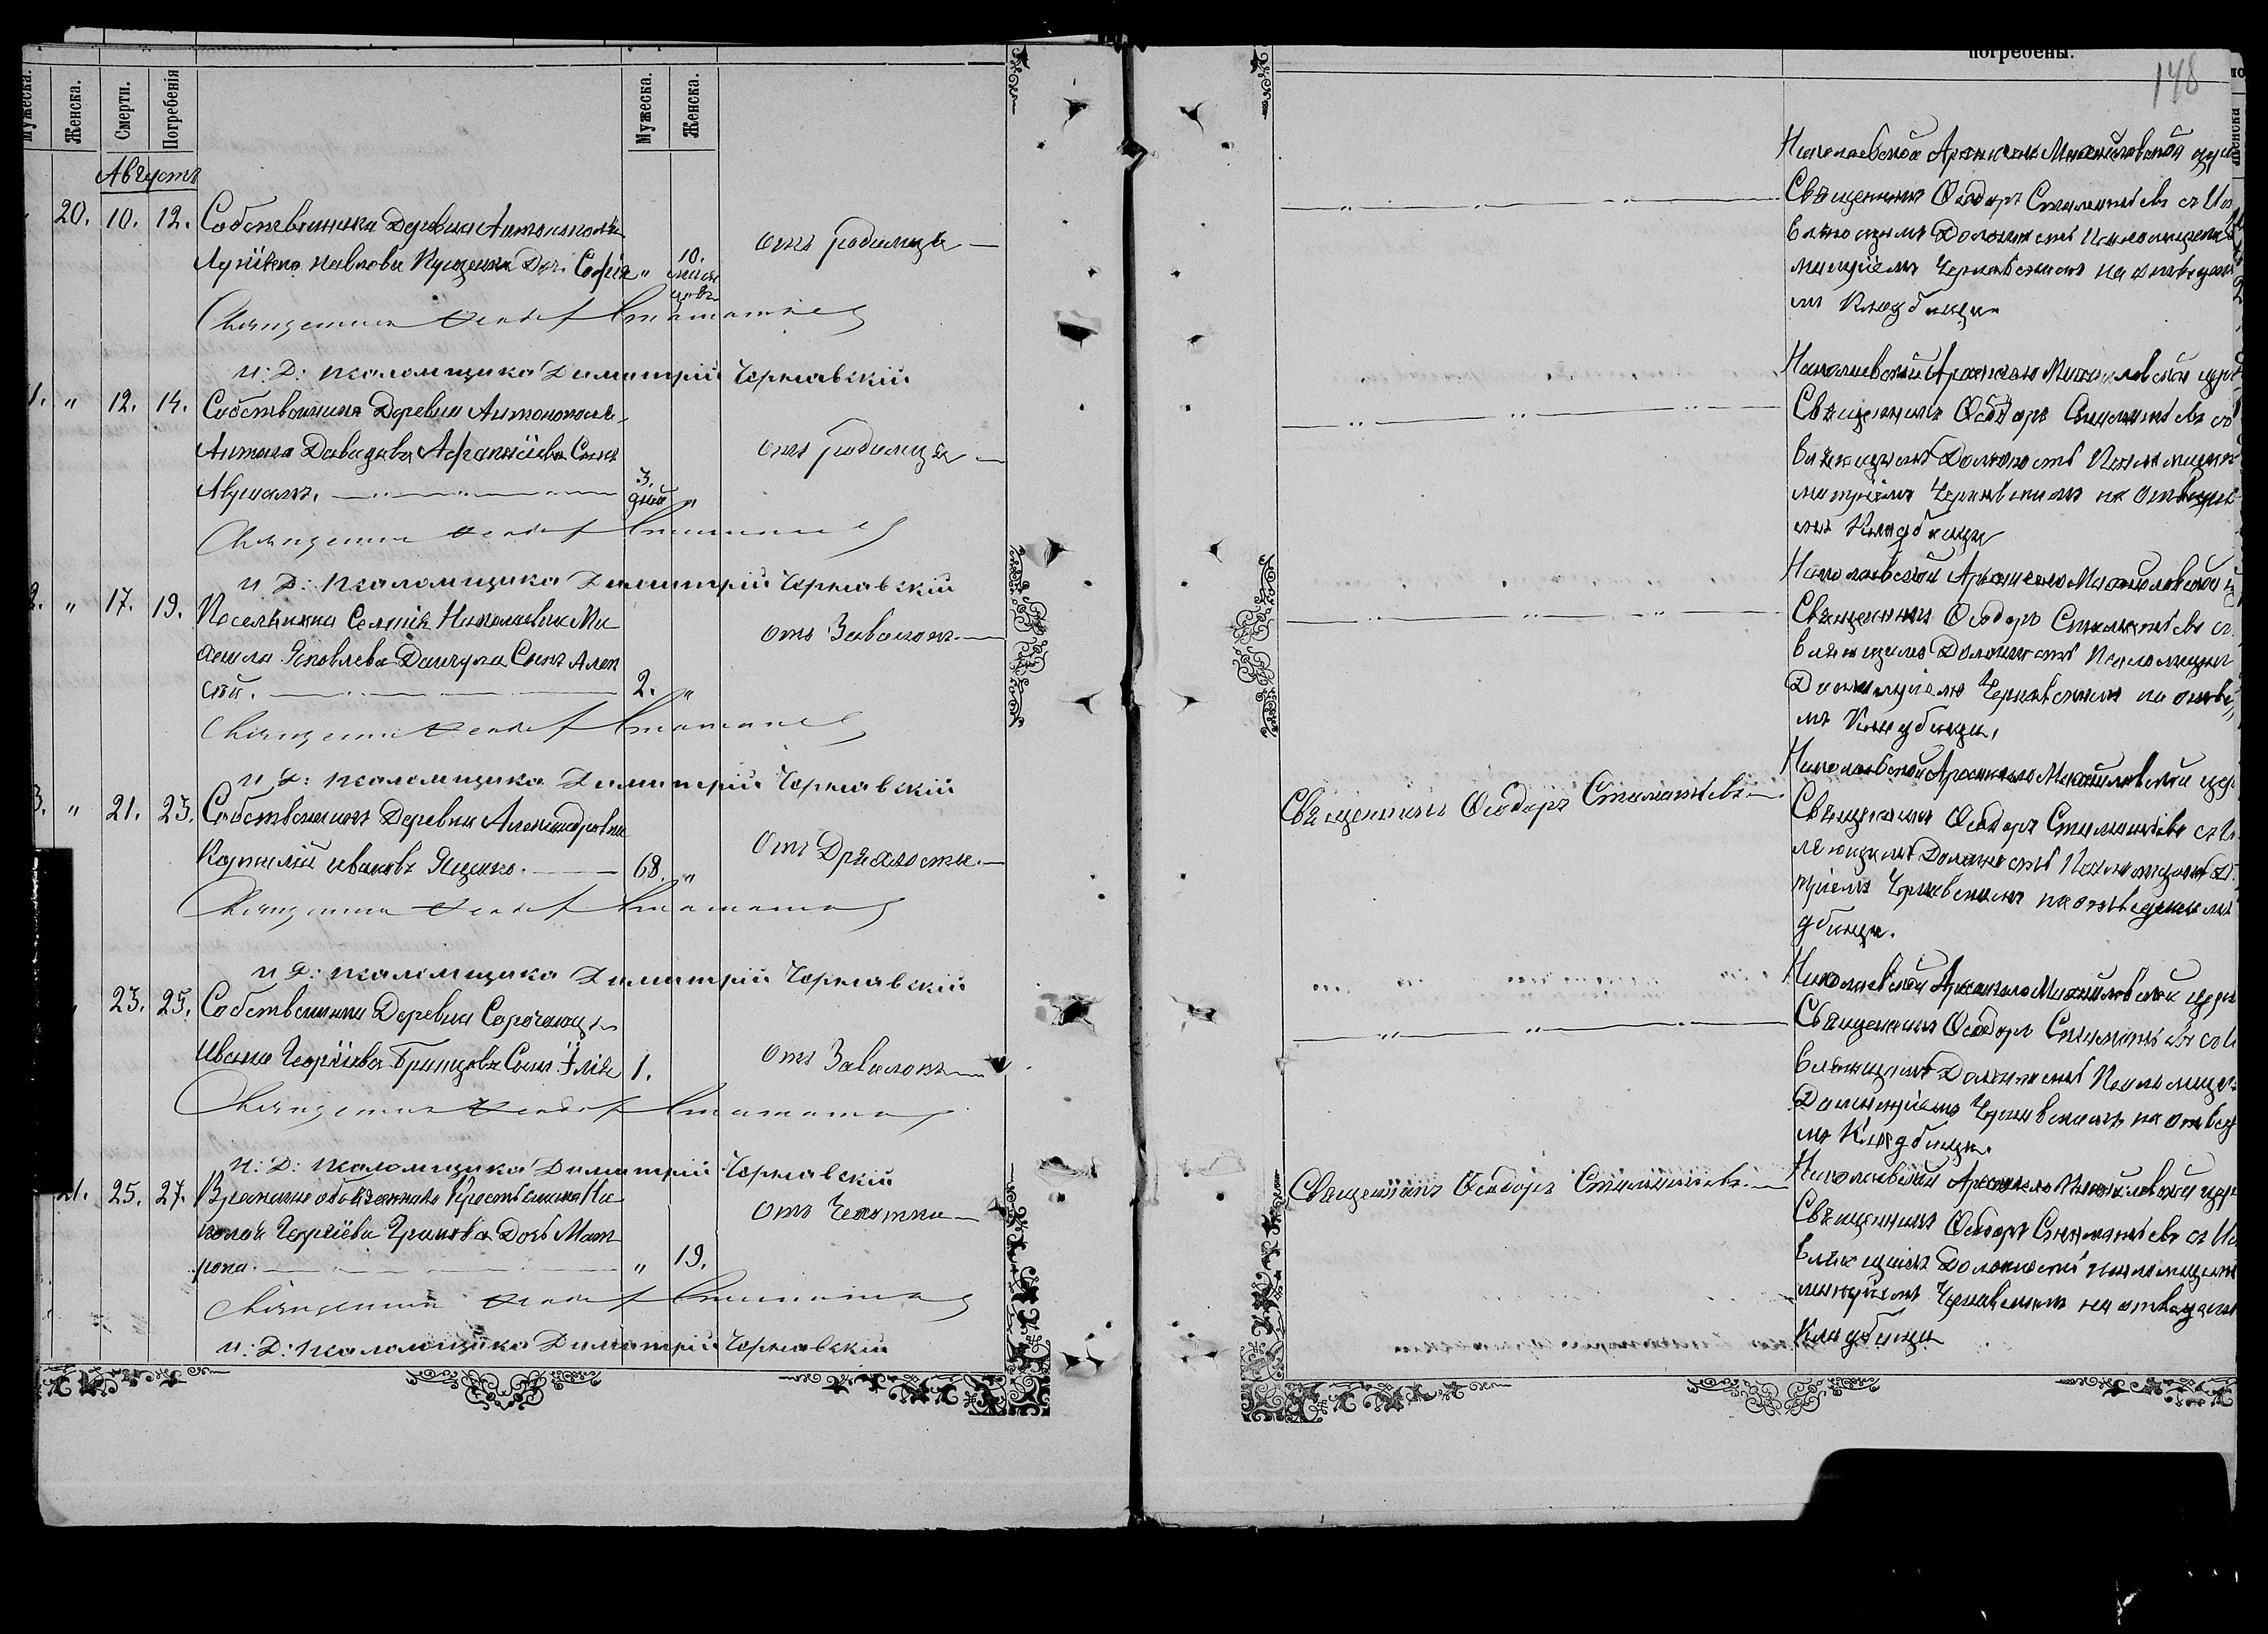 Мужеска.
Женска.
Смерти.
Погребенія
Мужеска.
Женска.
Августъ
20. 10. 12. Собственника Деревни Антонополь
Павлова Кущенка Дочь Софія " 10. месяцовъ
отъ родимца
Священникъ Ѳеодоръ Стаматьевъ
И: Д: псаломщика Димитрій Чернавскій
1. " 12. 14. Собственника Деревни Антонополь
Антона Давидова Афанасіева Сынъ
3. дней "
отъ родимца
Священникъ Ѳеодоръ Стаматьевъ
И: Д: псаломщика Димитрій Чернавскій
2. " 17. 19. Поселянина Селенія Николаевки Ми
хаила Яковлева Сынъ Алек
сѣй. 2. "
отъ Заваловъ
Священникъ Ѳеодоръ Стаматьевъ
И: Д: псаломщика Димитрій Чернавскій
3. " 21. 23. Собственникъ Деревни Александровки
Корнилій Ивановъ Яценко. 68. "
Отъ Дряхлости.
Священникъ Ѳеодоръ Стаматьевъ
И Д: псаломщика Димитрій Чернавскій
23. 25. Собственника Деревни
Ивана Георгіева Сынъ Илія 1.
отъ Заваловъ
Священникъ Ѳеодоръ Стаматьевъ
И: Д: псаломщика Димитрій Чернавскій
21. 25. 27. Временно обязаннаго Крестьянина Ни
колая Георгіева Дочь Мат
рона. " 19.
отъ Чахотки
Священникъ Ѳеодоръ Стаматьевъ
И: Д: псаломщика Димитрій Чернавскій
погребены.
148
Николаевской Архангело Михайловской церк
Священникъ Ѳеодоръ Стаматьевъ съ Ис
вляющимъ Должность Псаломщика
митріемъ Чернавскимъ на отведен
мъ Кладбищи
Николаевской Архангело Михайловской церк
Священникъ Ѳеодоръ Стаматьевъ съ
вляющимъ Должность Псаломщик
митріемъ Чернавскимъ на отведен
мъ Кладбищи
Николаевской Архангело Михайловской ц
Священникъ Ѳеодоръ Стаматьевъ съ
вляющимъ Должность Псаломщик
Димитріемъ Чернавскимъ на отве
мъ Кладбищи,
Священникъ Ѳеодоръ Стаматьевъ
Николаевской Архангело Михайловской цер
Священникъ Ѳеодоръ Стаматьевъ съ И
ляющимъ Должность Псаломщика Д
тріемъ Чернавскимъ на отведеномъ
дбищи.
Николаевской Архангело Михайловской церк
Священникъ Ѳеодоръ Стаматьевъ съ И
вляющимъ Должность Псаломщи
Димитріемъ Чернавскимъ на отвед
мъ Кладбищи.
Священникъ Ѳеодоръ Стаматьевъ
Николаевской Архангело Михайловской церк
Священникъ Ѳеодоръ Стаматьевъ съ Ис
вляющимъ Должность псаломщика
митріемъ Чернавскимъ на отведеном
Кладбищи